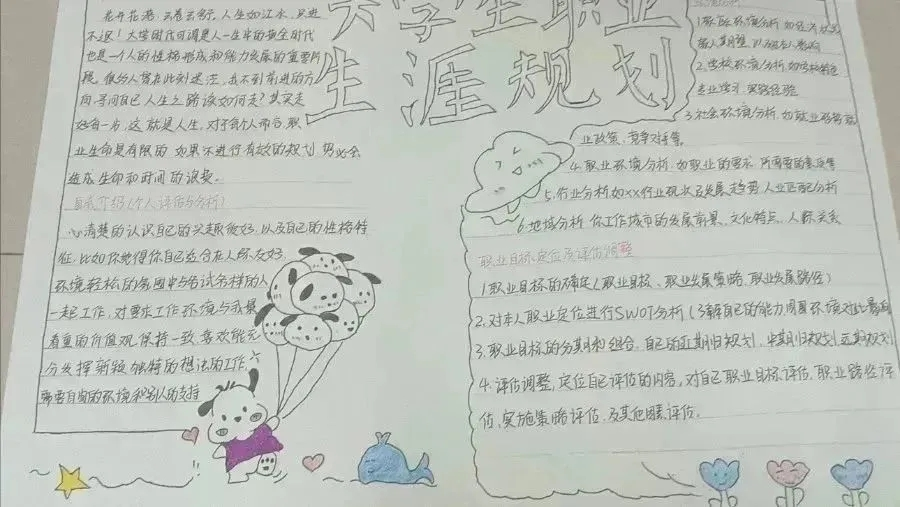 大学生职业
生涯规划
花开花落,云卷云舒。人生如江水,只进
不退!大学时代可谓是人一生中的黄金时代
也是一个人的性格形成和能力发展的重要阶
段,很多人常在此刻迷茫,找不到前进的方
向,寻问自己人生之路该如何走?其实走
好每一步,这就是人生,对于每个人而言,职
业生命是有限的,如果不进行有效的规划,势必会
造成生命和时间的浪费。
自我介绍(个人评估与分析)
心清楚的认识自己的兴趣爱好,以及自己的性格特
征,比如你觉得你自己适合在人际友好,
环境轻松的氛围中与各式各样的人
一起工作,对要求工作环境与我最
看重的价值观,保持一致,喜欢能充
分发挥新颖独特的想法的工作,
需要自由的环境和别人的支持
环境分析
1.家庭环境分析,如经济状况
家人期望,以及家人影响
2.学校环境分析,如学校特色,
专业学习,实践经验
3.社会环境分析,如就业形势,就
业政策,竞争对手等。
4.职业环境分析,如职业的要求,所需要的素质等
5.行业分析如xx行业现状及发展趋势,人业匹配分析
6.地域分析,你工作城市的发展前景,文化特点,人际关系
职业目标定位及评估调整
1.职业目标的确定(职业目标、职业发展策略、职业发展路径)
2.对本人职业定位进行SWOT分析(了解自己的能力,周围环境对比,影响
3.职业目标的分期和组合,自己的近期归规划,中期归规划,远期规划
4.评估调整,定位自己评估的内容,对自己职业目标评估,职业路径评
估,实施策略评估,及其他因素评估。